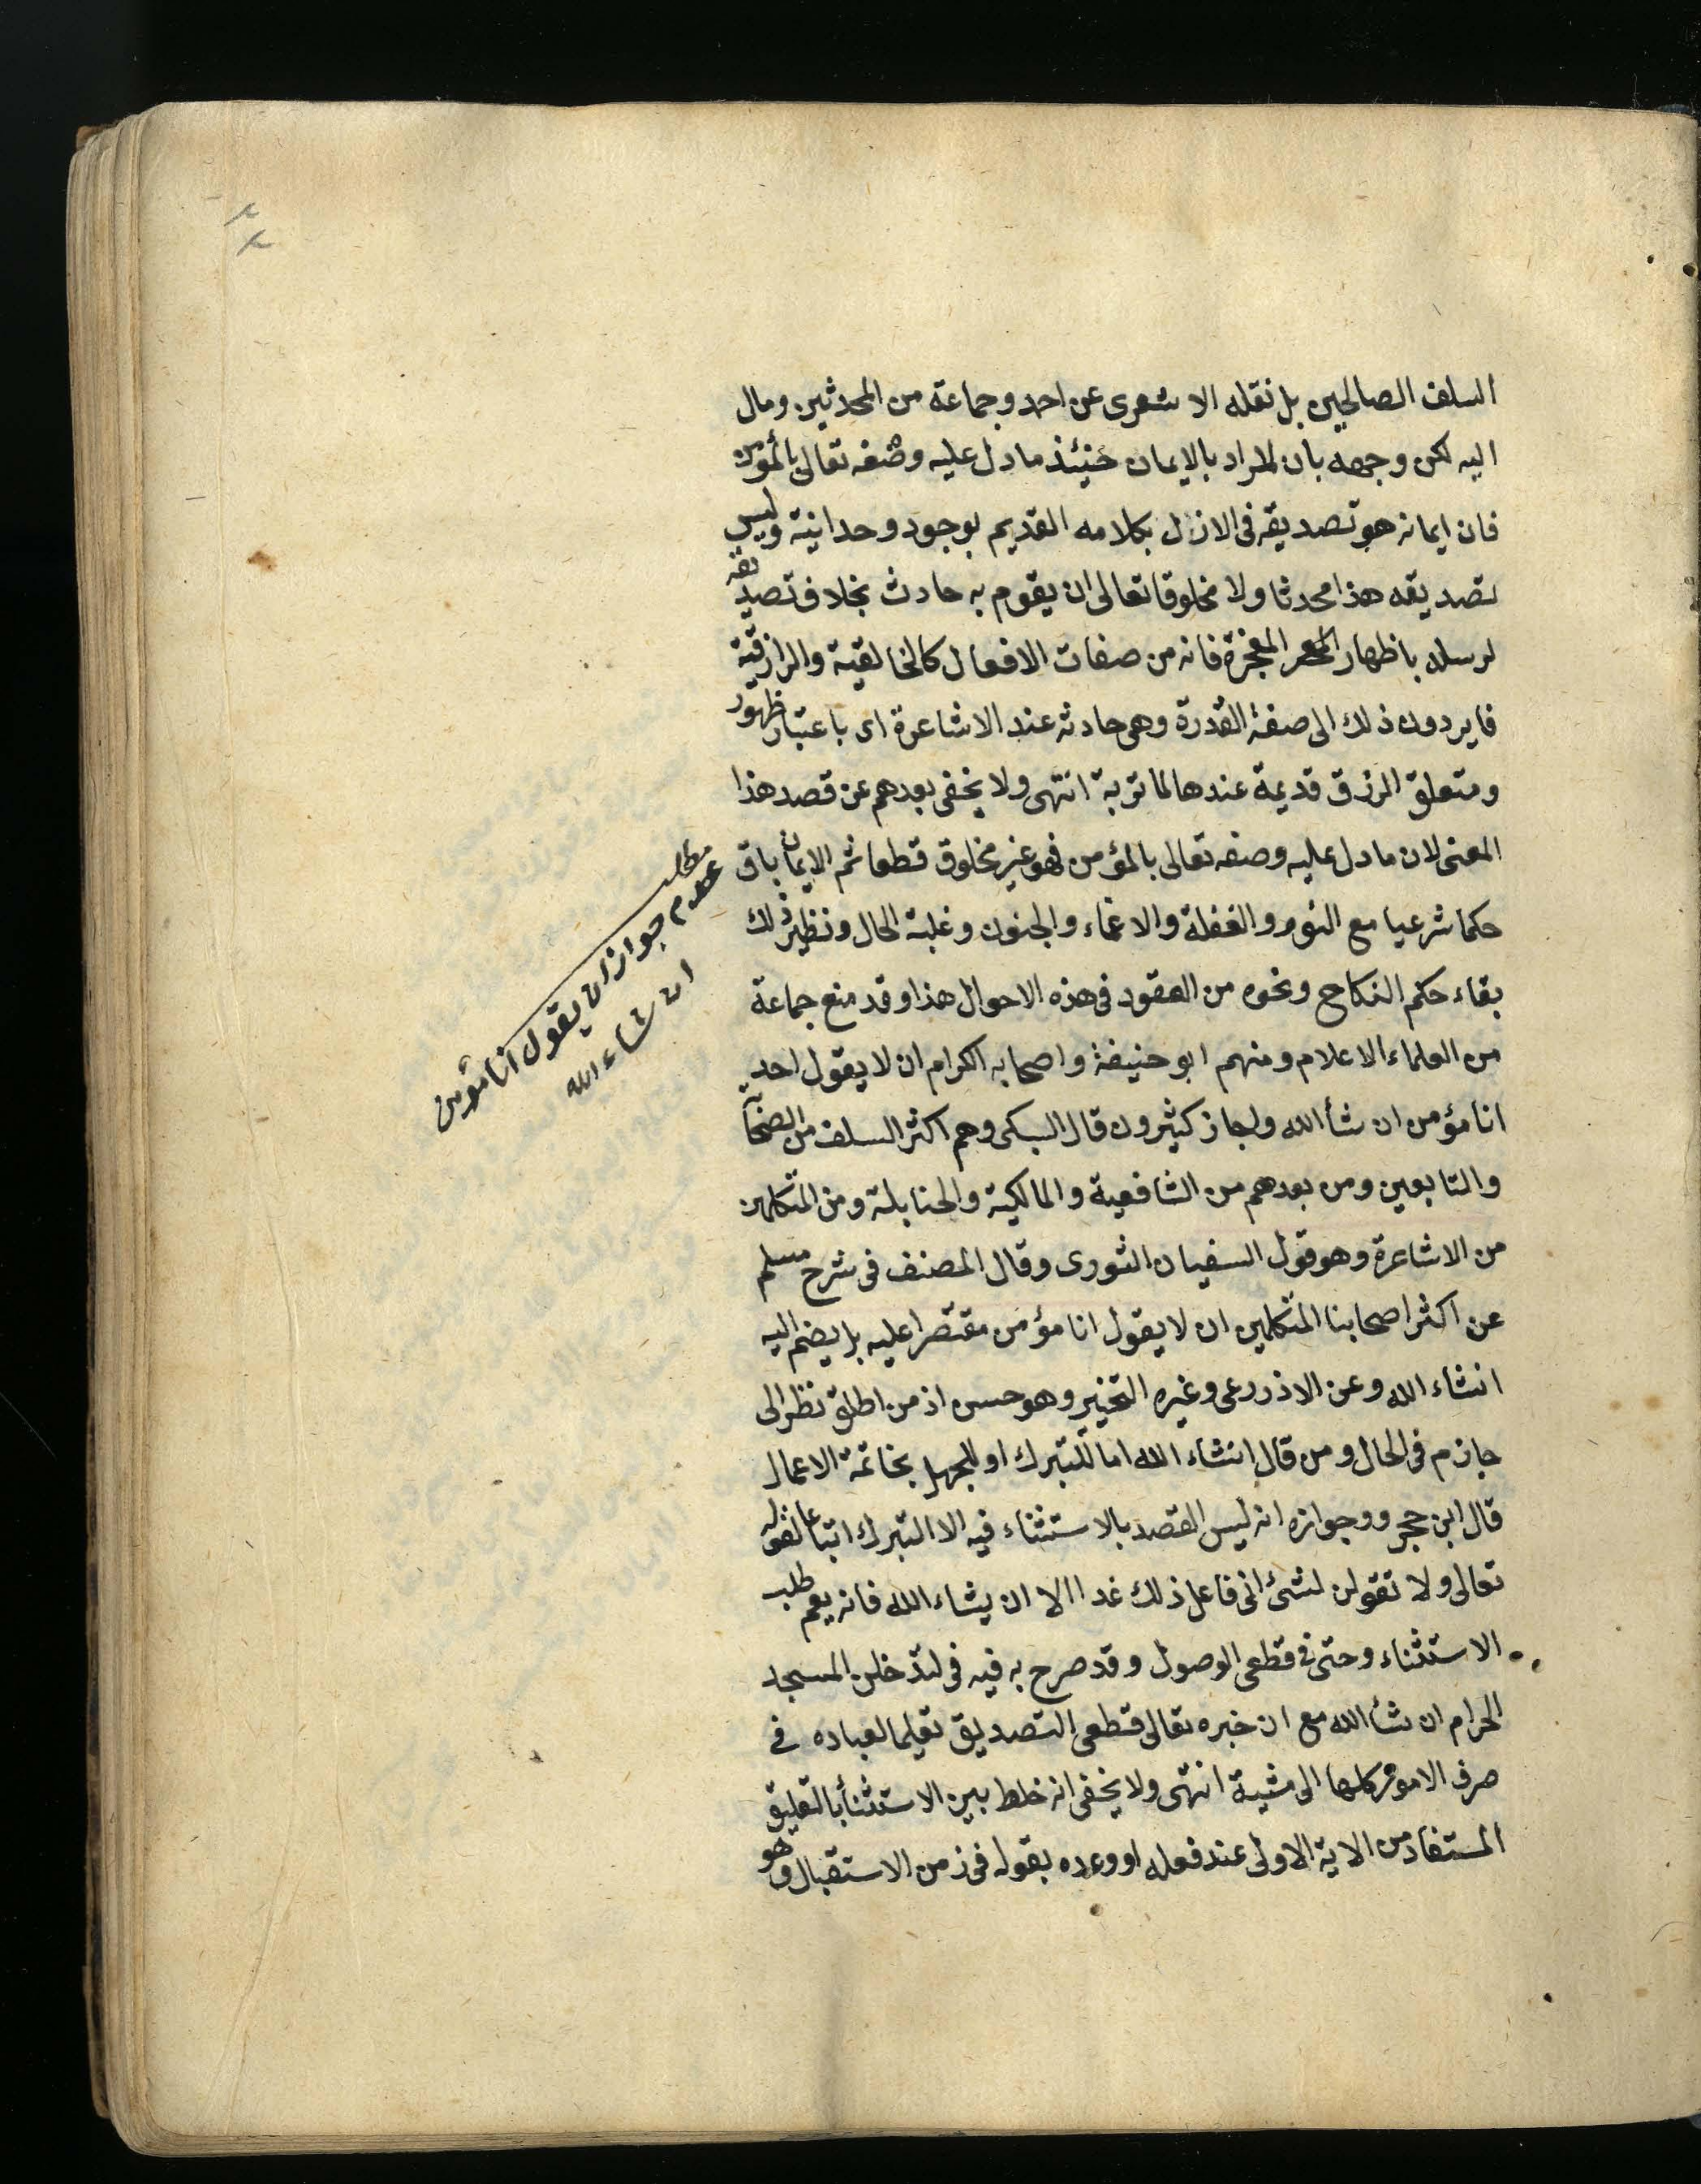 السلف الصالحين بل نقله الاشعرى عن احد وجماعة من المحدثين ومال
اليه لكن وجهه بان المراد بالايمان حنيئذ مادل عليه وصفه تعالى بالمؤمن
فان ايمانه هو تصديقه فى الازل بكلامه القديم بوجود وحدانيته وليس
تصديقه هذا محدثا ولا مخلوقا تعالى ان يقوم به حادث بخلاف تصديقه
لرسله باظهار المعجزة فانه من صفات الافعال كالخالقية والرازقية
فايردون ذلك الى صفة القدرة وهى حادثه عند الاشاعرة اى باعتبار ظهور
ومتعلق الرزق قديمة عندها لماتربة انتهى ولا يخفى بعدهم عن قصد هذا
المعنى لان مادل عليه وصفه تعالى بالمؤمن فهو غير مخلوق قطعا ثم الايمان باق
حكما شرعيا مع النوم والغفلة والاغماء والجنون وغلبة الحال ونظير ذلك
بقاء حكم النكاح ونحوه من العقود فى هذه الاحوال هذا وقد منع جماعة
من العلماء الاعلام ومنهم ابو حنيفة واصحابه الكرام ان لا يقول احد
انا مؤمن ان شأ الله واجاز كثيرون قال السبكى وهم اكثر السلف من الصحآ
والتابعين ومن بعدهم من الشافعية والمالكية والحنابلة ومن المتكلمين
من الاشاعرة وهو قول السفيان الثورى وقال المصنف فى شرح مسلم
عن اكثر اصحابنا المتكلمين ان لا يقول انا مؤمن مقتصرا عليه بل يضم اليه
انشاء الله وعن الاذروعى وغيره التخيير وهو حسن اذ من اطلق نظر الى
جازم فى الحال ومن قال انشاء الله اما للتبرك او للجهل بخاتمة الاعمال
قال ابن حجر ووجوازه انه ليس القصد بالاستثناء فيه الا التبرك اتباعا لقوله
تعالى ولا تقولن لشئ انى فاعل ذلك غدا الا ان يشاء الله فانه يعم طلب
الاستثناء وحتى فى قطعى الوصول وقد صرح به فيه فى لتدخلن المسجد
الحرام ان شأ الله مع ان خبره تعالى قطعى التصديق تعليما لعباده فى
صرف الامور كلها الى مشية انتهى ولا يخفى انه خلط بين الاستثنأ بالتعليق
المستفاد من الاية الاولى عند فعله او وعده بقوله فى زمن الاستقبال وهو
مطلب
عدم جواز ان يقول انا مؤمن
ان شاء الله